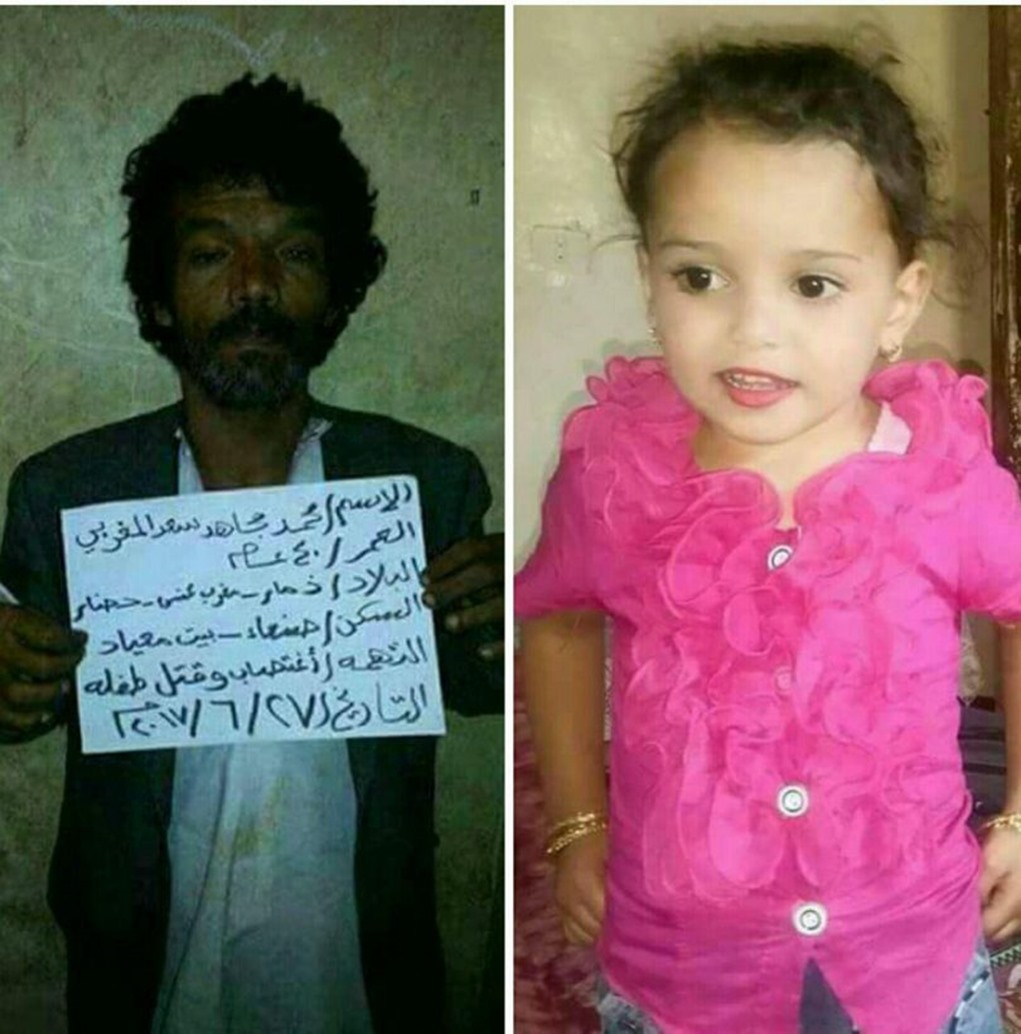 الاسم/محمد مجاهد سعد المغربي
العمر/٤٠ عام
البلاد/ذمار - مغرب عنس -
السكن/صنعاء - بيت معياد
التهمه/أغتصاب وقتل طفله
التاريخ/٢٧/٦/٢٠١٧م